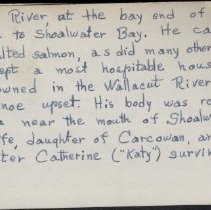 River, at the bay end of
to Shoalwater Bay. He ca
lted salmon, as did many other
ept a most hospitable hous
owned in the Wallacut River
noe upset. His body was re
near the mouth of Shoalw
fe, daughter of Carcowan, an
ter Catherine ("Katy") surviv